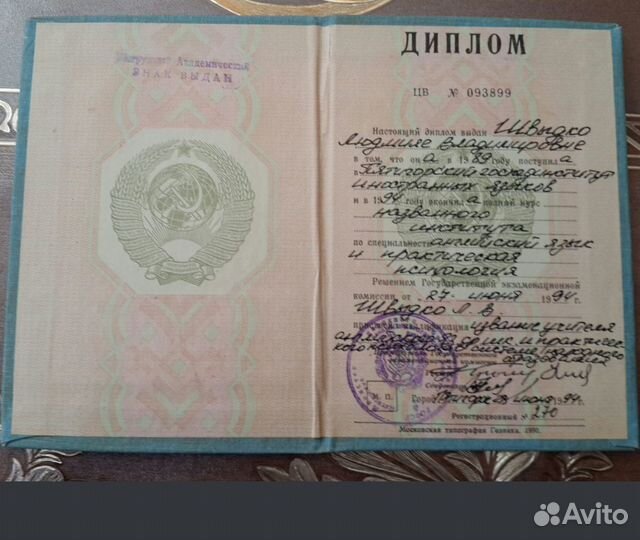 Нагрудный Академический
ЗНАК ВЫДАН
ДИПЛОМ
ЦВ № 093899
Настоящий диплом выдан Швыдко
Людмиле Владимировне
в том, что она в 1989 году поступила
в Пятигорский госпединститут
иностранных языков
и в 1994 году окончила полный курс
названного
института
по специальности английский язык
и практическая
психология
Решением Государственной экзаменационной
комиссии от 27 июня 1994 г.
Швыдко Л. В.
квалификация учителя
английского и
народного
образования
М. П.
Город Пятигорск июня 1994 г.
Регистрационный № 370
Московская типография Гознака. 1990.
Avito